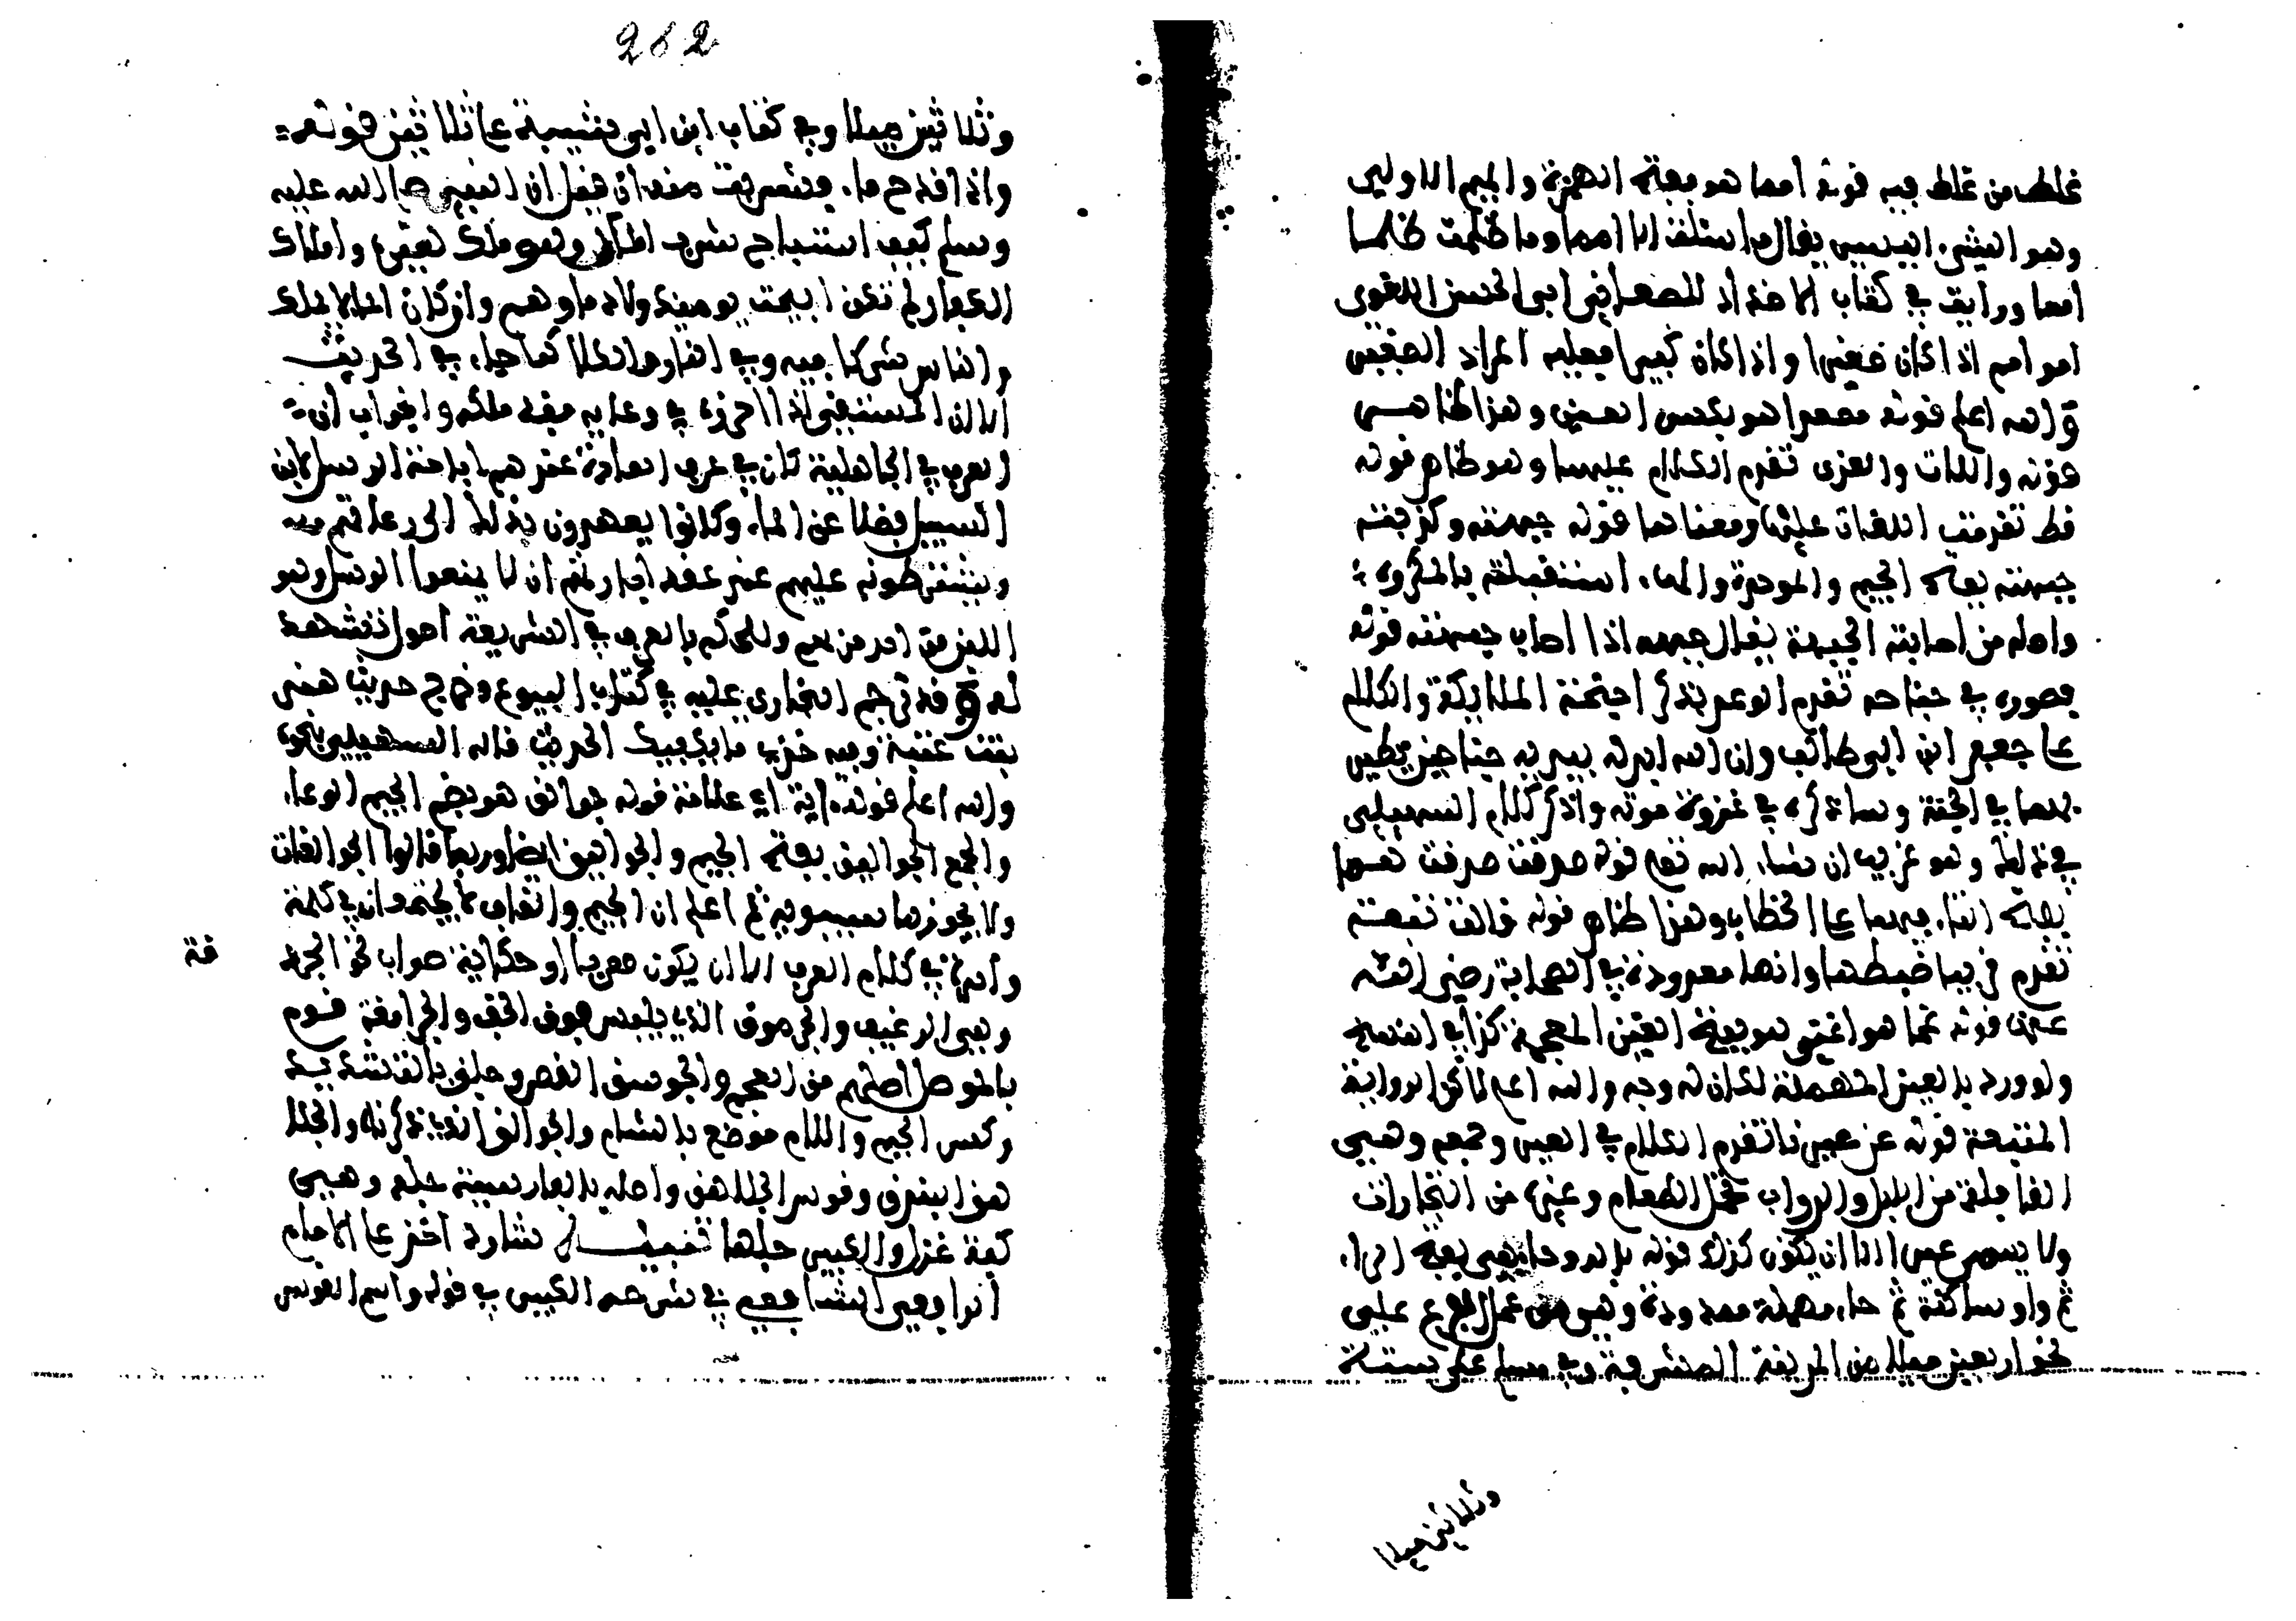 غلط من غلط فيه قوله أمما هو بفتح الهمزة والميم الاولى
وهو الشيء اليسير يقال ما سألت الا أمما وما ظلمت ظلما
أمما ورأيت في كتاب الاضداد للصغاني ابي الحسن اللغوي
امر امم اذا كان صغيرا واذا كان كبيرا فعليه المراد الصغير
والله اعلم قوله هو بكسر العين وهذا ظاهر
قوله واللات والعزى تقدم الكلام عليهما وهو ظاهر قوله
قط تقدمت اللغات عليها ومعناها قوله جبهته وكذبته
جبهته بفتح الجيم والموحدة والهاء استقبلته بالمكروه
واصله من اصابة الجبهة يقال جبهه اذا اصاب جبهته قوله
في جناحه تقدم الوعد بذكر اجنحة الملائكة والكلام
على جعفر ابن ابي طالب وان الله ابدله بيديه جناحين يطير
بهما في الجنة وساذكره في غزوة موتة واذكر كلام السهيلي
في ذلك وهو غريب ان شاء الله تعلى قوله صدقت صدقت هما
بفتح التاء فيهما على الخطاب وهذا ظاهر قوله
تقدم قريبا ضبطها وانها معدودة في الصحابة رضي الله
عنها قوله هو بفتح الغين المعجمة كذا في النسخ
ولو ورد بالعين المهملة لكان له وجه والله اعلم لاكن الرواية
المتبعة قوله عن عير تقدم الكلام في العير وهي
القافلة من الابل والدواب تحمل الطعام وغيره من التجارات
ولا يسمى عيرا الا ان يكون كذلك قوله بالروحاء هي بفتح الراء
ثم واو ساكنة ثم حاء مهملة ممدودة وهي من عمل الفرع على
نحو اربعين ميلا من المدينة المشرفة وفي مسلم على ستة
وثلاثين ميلا
262
وثلاثين ميلا وفي كتاب ابن ابي شيبة على ثلاثين قوله
واذا قدح ماء فشربت فان قيل ان النبي صلى الله عليه
وسلم كيف استباح شرب الماء وهو ملك لغيره واملاك
الكفار لم تكن ابيحت يومئذ ولا دماؤهم وان كان الماء لذلك
والناس شركا فيه وفي النار والكلا كما جاء في الحديث
الا ان المستقي اذا احرزه في وعايه فقد ملكه والجواب ان
العرب في الجاهلية كان في عرف العادة عندهم اباحة الرسل لابن
السبيل فضلا عن الماء وكانوا يعهدون بذلك الى رعاتهم
ويشترطونه عليهم عند عقد اجارتهم ان لا يمنعوا الرسل وهو
اللبن من احد مر بهم وللحكم بالعرف في الشريعة اصول تشهد
له وقد ترجم البخاري عليه في كتاب البيوع وخرج حديث هند
بنت عتبة وفيه خذي ما يكفيك الحديث قاله السهيلي بنحوه
والله اعلم قوله اية اي علامة قوله جوالق هو بضم الجيم الوعاء
والجمع الجوالق بفتح الجيم والجواليق ايضا وربما قالوا الجوالقات
ولا يجوزها سيبويه ثم اعلم ان الجيم والقاف لا يجتمعان في كلمة
واحدة في كلام العرب الا ان يكون معربا او حكاية صوات نحو الجرد
قة
وهي الرغيف والجرموق الذي يلبس فوق الخف والجرامقة قوم
بالموصل اصلهم من العجم والجوسق القصر وجلق بالتشديد
وكسر الجيم واللام موضع بالشام والجوالق الذي ذكرناه والجلا
هق البندق وقوس الجلاهق واصله بالفارسية جله وهي
كبة غزل والكبير جلها تنبيه شارد اخر على الامام
الرافعي الشافعي في شرحه الكبير في قوله واسم القوس